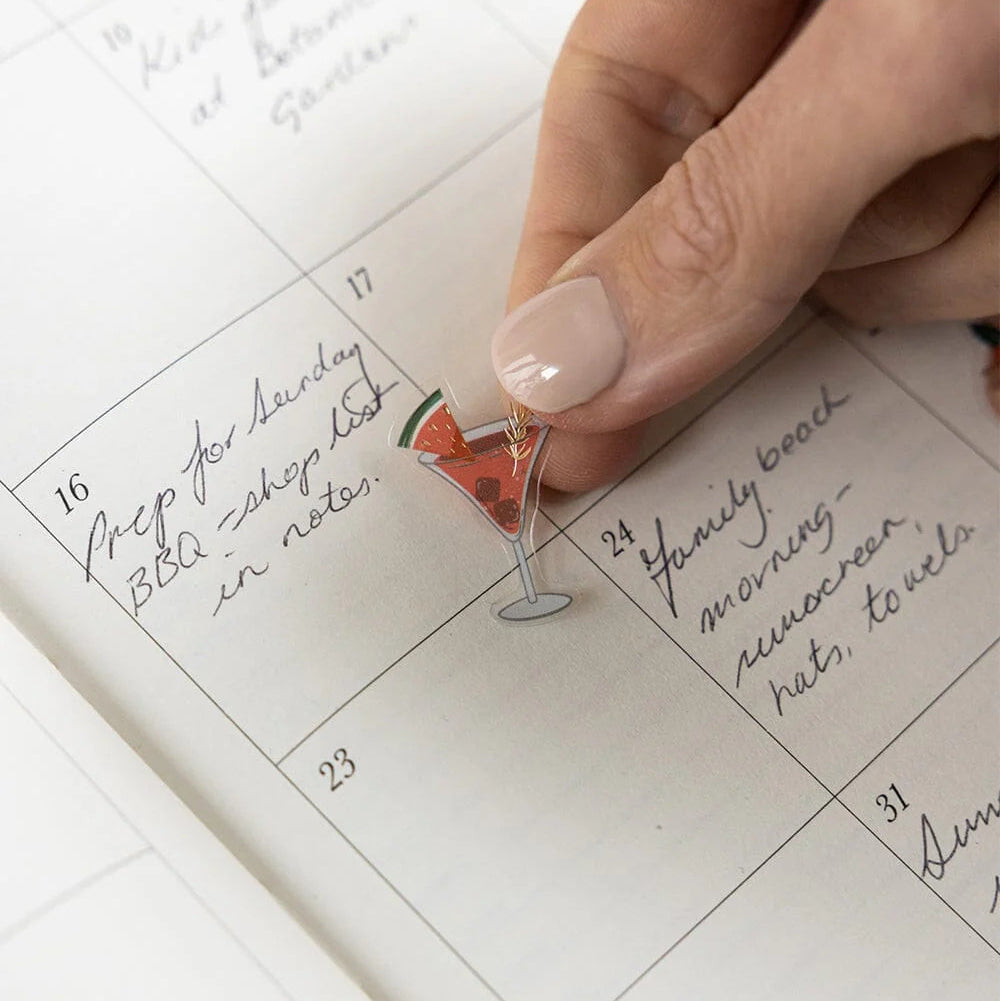 10
Kids
at Botanic
Garden
17
16
Prep for Sunday
BBQ - shop list
in notes.
24
Family beach
morning -
sunscreen,
hats, towels.
23
31